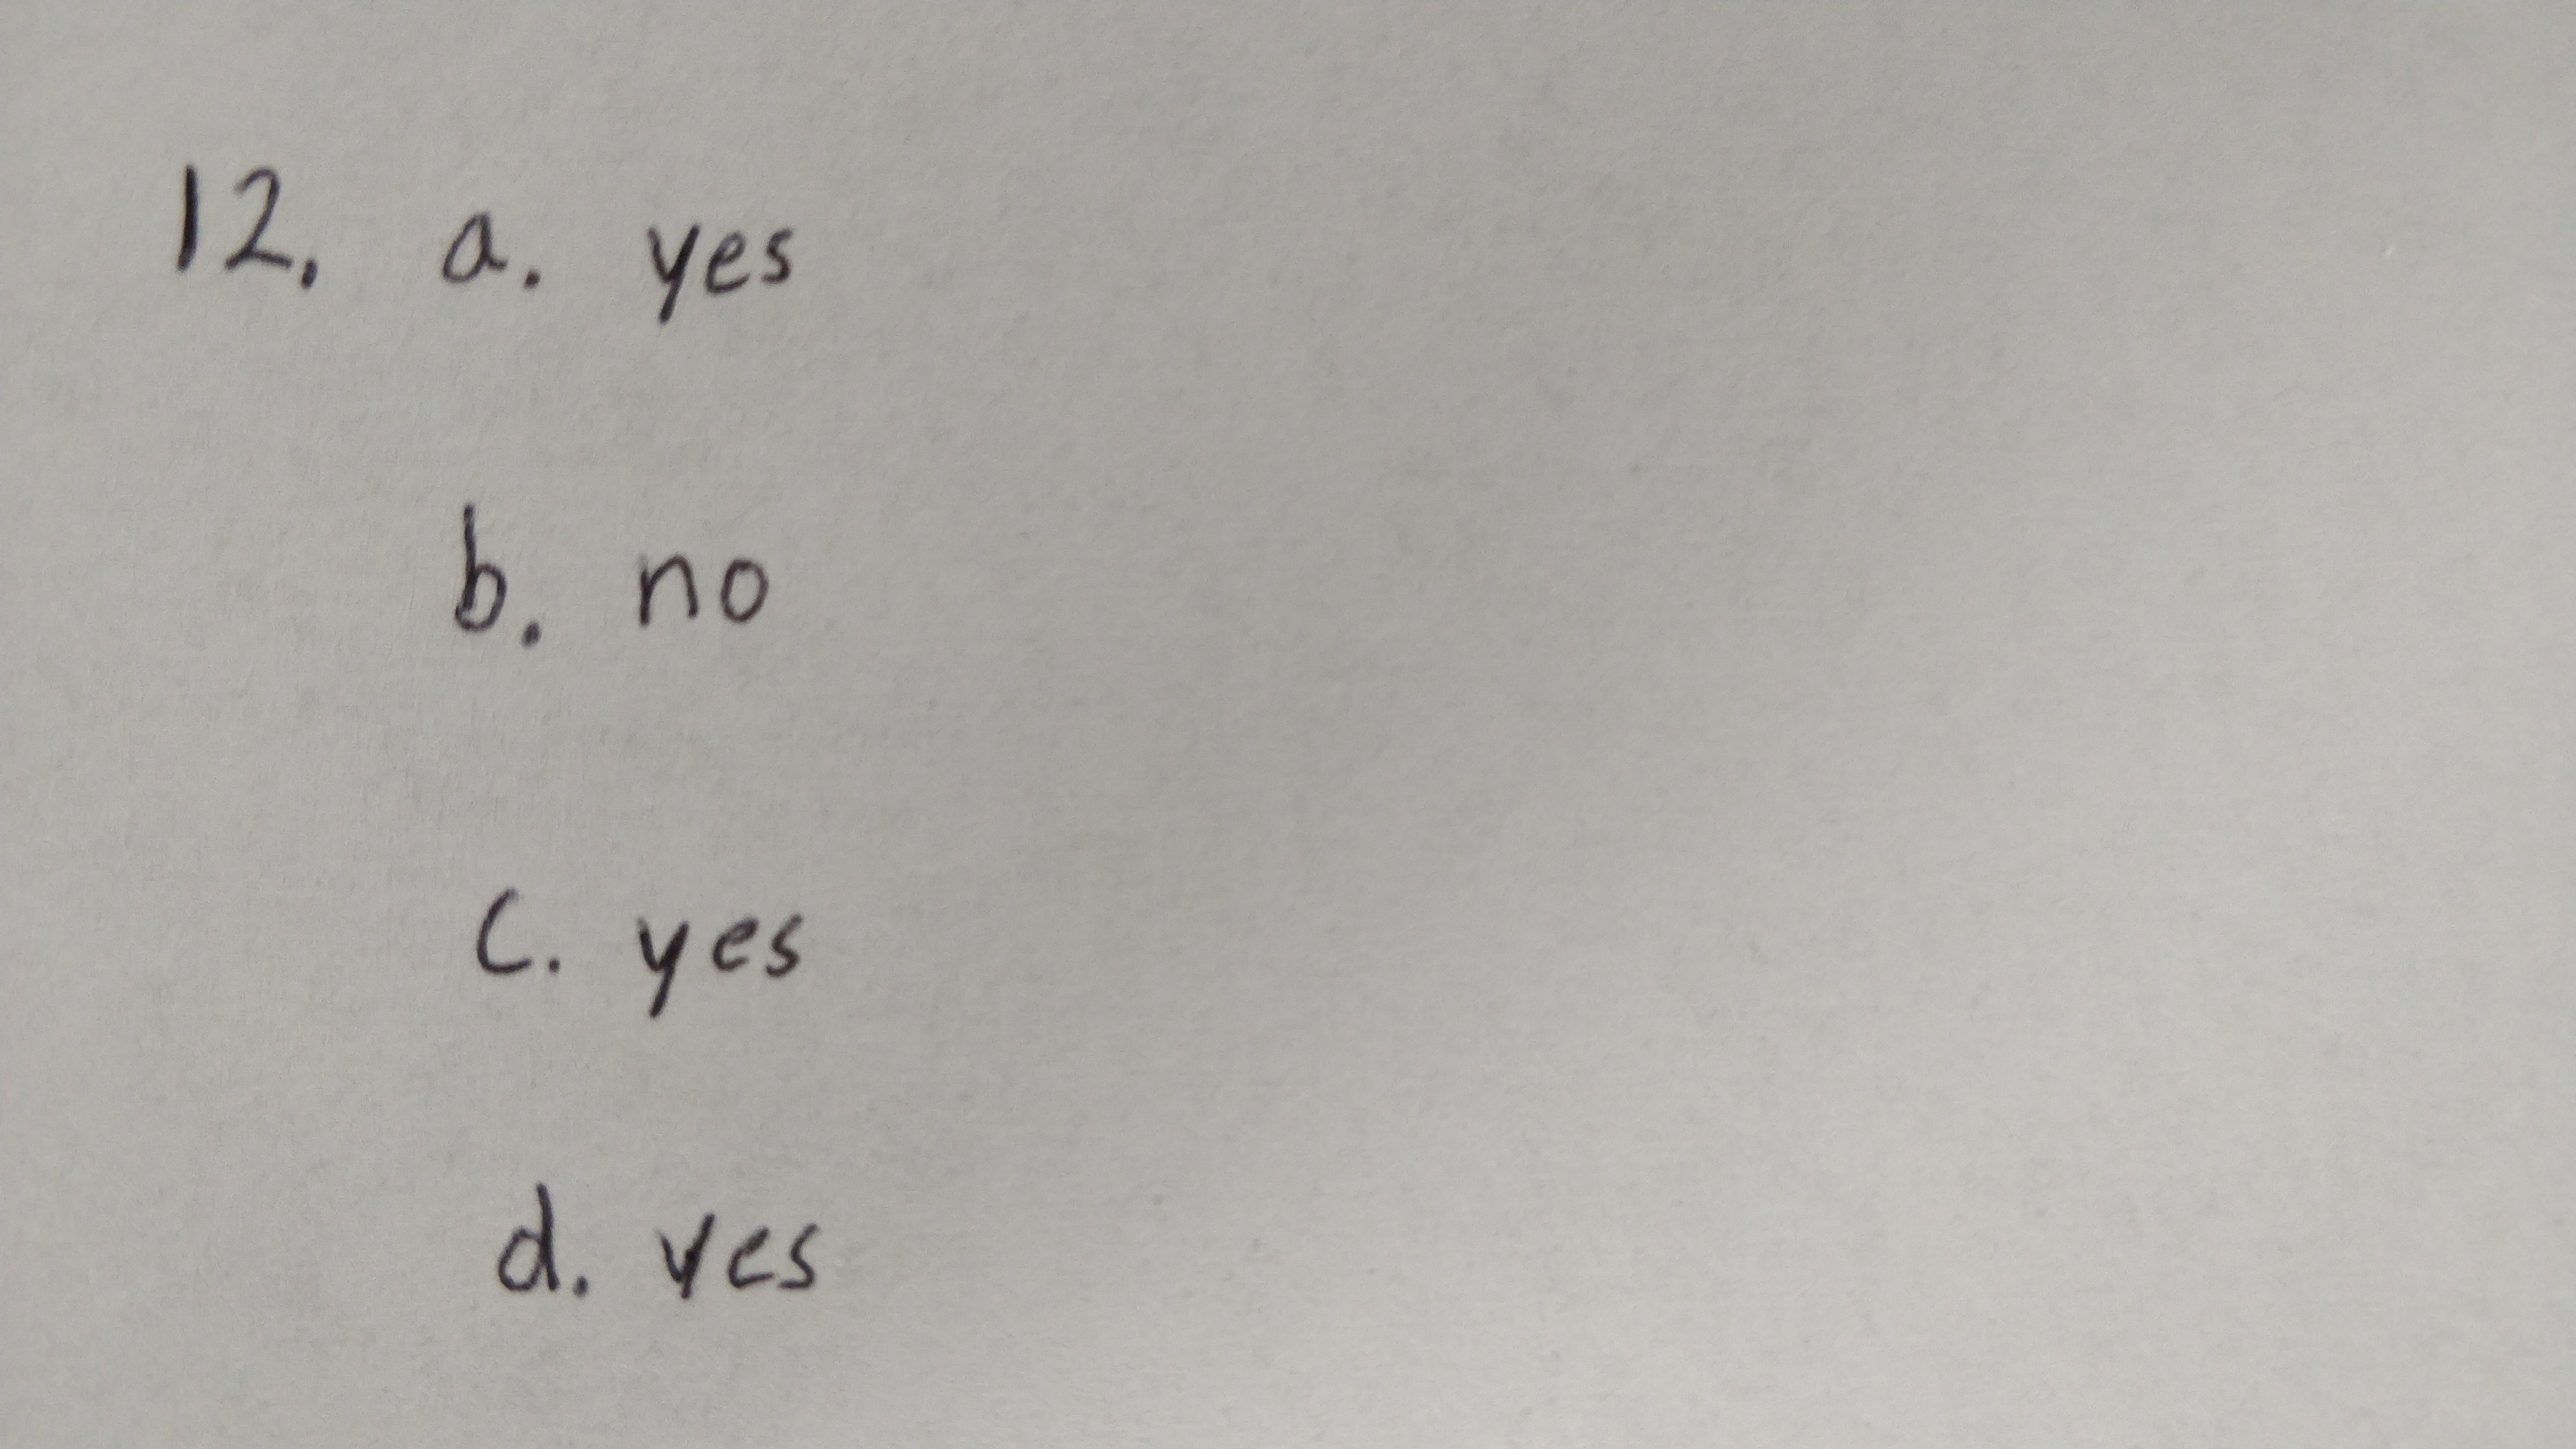 12. a. yes
b. no
c. yes
d. yes